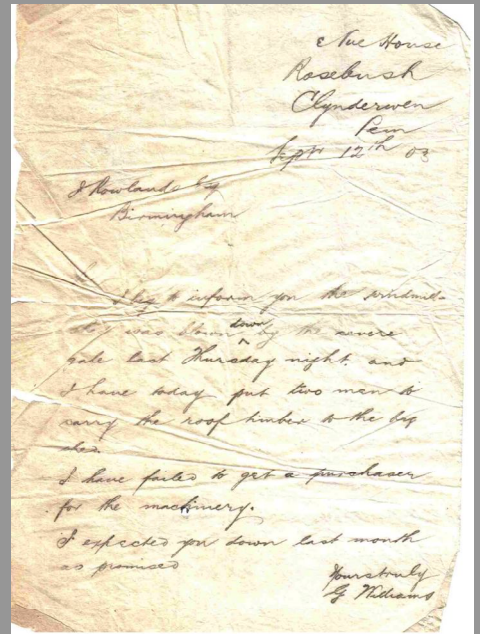 House
Rosebush
Clynderwen
Pem
Sept 12th 03
J Rowlands Esq
Birmingham
I beg to inform you the
was blown down by the severe
gale last Thursday night. and
I have today put two men to
carry the roof timber to the big
shed.
I have failed to get a purchaser
for the machinery.
I expected you down last month
as promised
Yours truly
G Williams